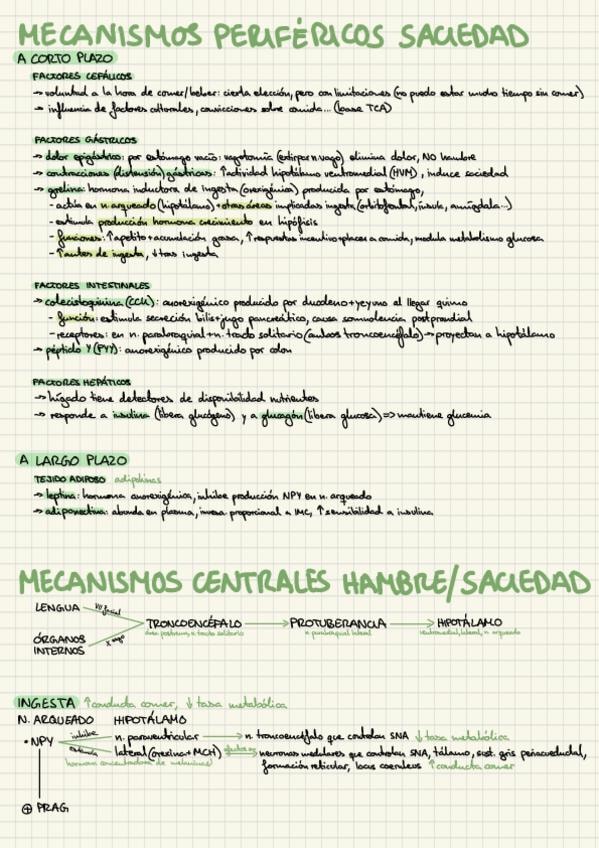 MECANISMOS PERIFÉRICOS SACIEDAD
A CORTO PLAZO
FACTORES CEFÁLICOS
→ voluntad a la hora de comer/beber: cierta elección, pero con limitaciones (no puedo estar mucho tiempo sin comer)
→ influencia de factores culturales, convicciones sobre comida... (base TCA)
FACTORES GÁSTRICOS
→ dolor epigástrico: por estómago vacío: vagotomía (extirpar n.vago) elimina dolor, NO hambre
→ contracciones (distensión) gástricas: ↑actividad hipotálamo ventromedial (HVM), induce saciedad
→ grelina: hormona inductora de ingesta (orexigénica) producida por estómago,
- actúa en n. arqueado (hipotálamo) + otras áreas implicadas ingesta (orbitofrontal, ínsula, amígdala...)
- estimula producción hormona crecimiento en hipófisis
- funciones: ↑apetito + acumulación grasa, ↑respuestas incentivo + placer a comida, modula metabolismo glucosa
- ↑antes de ingesta, ↓tras ingesta
FACTORES INTESTINALES
→ colecistoquinina (CCK): anorexigénico producido por duodeno + yeyuno al llegar quimo
- función: estimula secreción bilis + jugo pancreático, causa somnolencia postprandial
- receptores: en n. parabraquial + n. tracto solitario (ambos troncoencéfalo) → proyectan a hipotálamo
→ péptido Y (PYY): anorexigénico producido por colon
FACTORES HEPÁTICOS
→ hígado tiene detectores de disponibilidad nutrientes
→ responde a insulina (libera glucógeno) y a glucagón (libera glucosa) => mantiene glucemia
A LARGO PLAZO
TEJIDO ADIPOSO adipokinas
→ leptina: hormona anorexigénica, inhibe producción NPY en n. arqueado
→ adiponectina: abunda en plasma, inversa proporcional a IMC, ↑ sensibilidad a insulina
MECANISMOS CENTRALES HAMBRE/SACIEDAD
LENGUA VII facial
TRONCOENCÉFALO → PROTUBERANCIA → HIPOTÁLAMO
área postrema, n. tracto solitario n. parabraquial lateral ventromedial, lateral, n. arqueado
ÓRGANOS INTERNOS X vago
INGESTA ↑conducta comer, ↓ tasa metabólica
N. ARQUEADO HIPOTÁLAMO
• NPY inhibe n. paraventricular → n. troncoencéfalo que controlan SNA ↓ tasa metabólica
estimula lateral (orexina + MCH) → neuronas medulares que controlan SNA, tálamo, sust. gris periacueductal,
hormona concentradora de melanina formación reticular, locus coeruleus ↑ conducta comer
⊕ PRAG